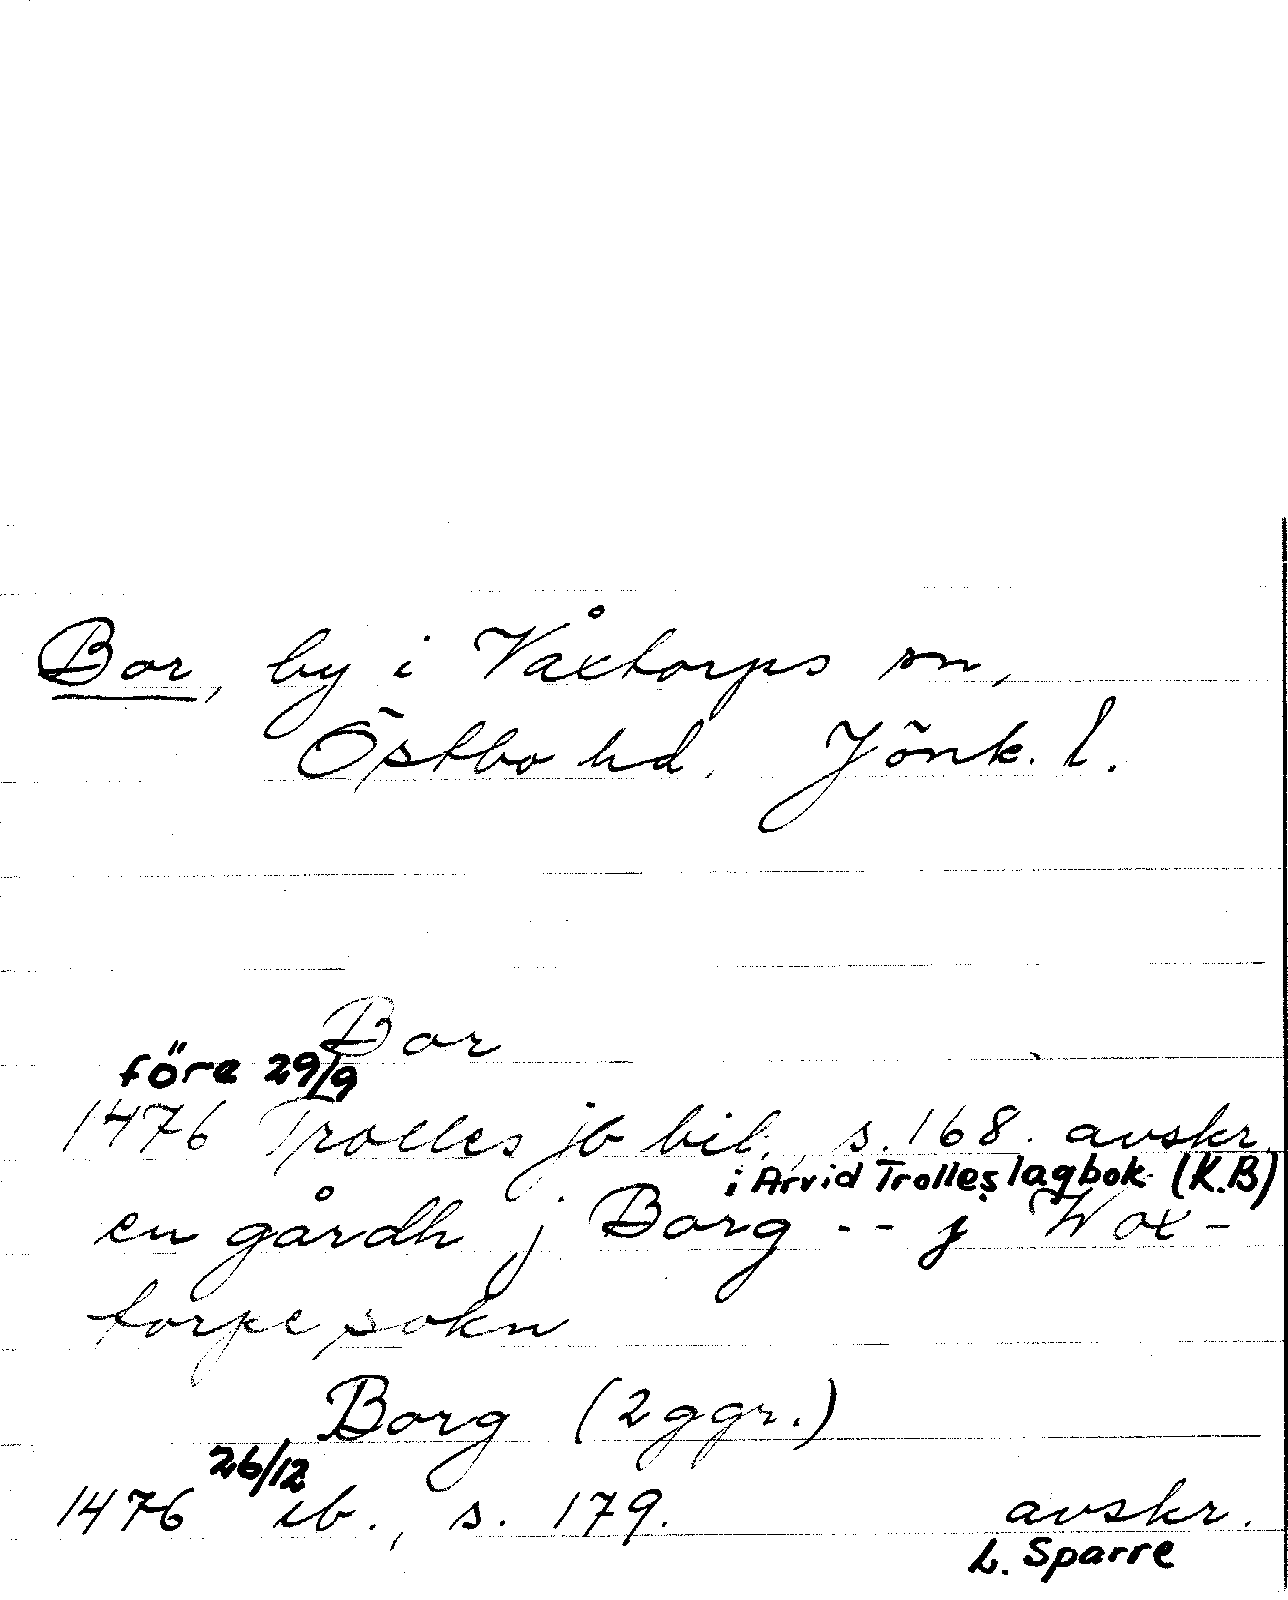 Bor, by i Våxtorps sn,
Östbo hd. Jönk. l.
Bor
före 29/9
1476 Trolles jb bil., s. 168. avskr.
i Arvid Trolles lagbok (K.B)
en gårdh j Borg -- j Wox-
torpe sokn
Borg (2 ggr.)
26/12
1476 ib., s. 179. avskr.
L. Sparre